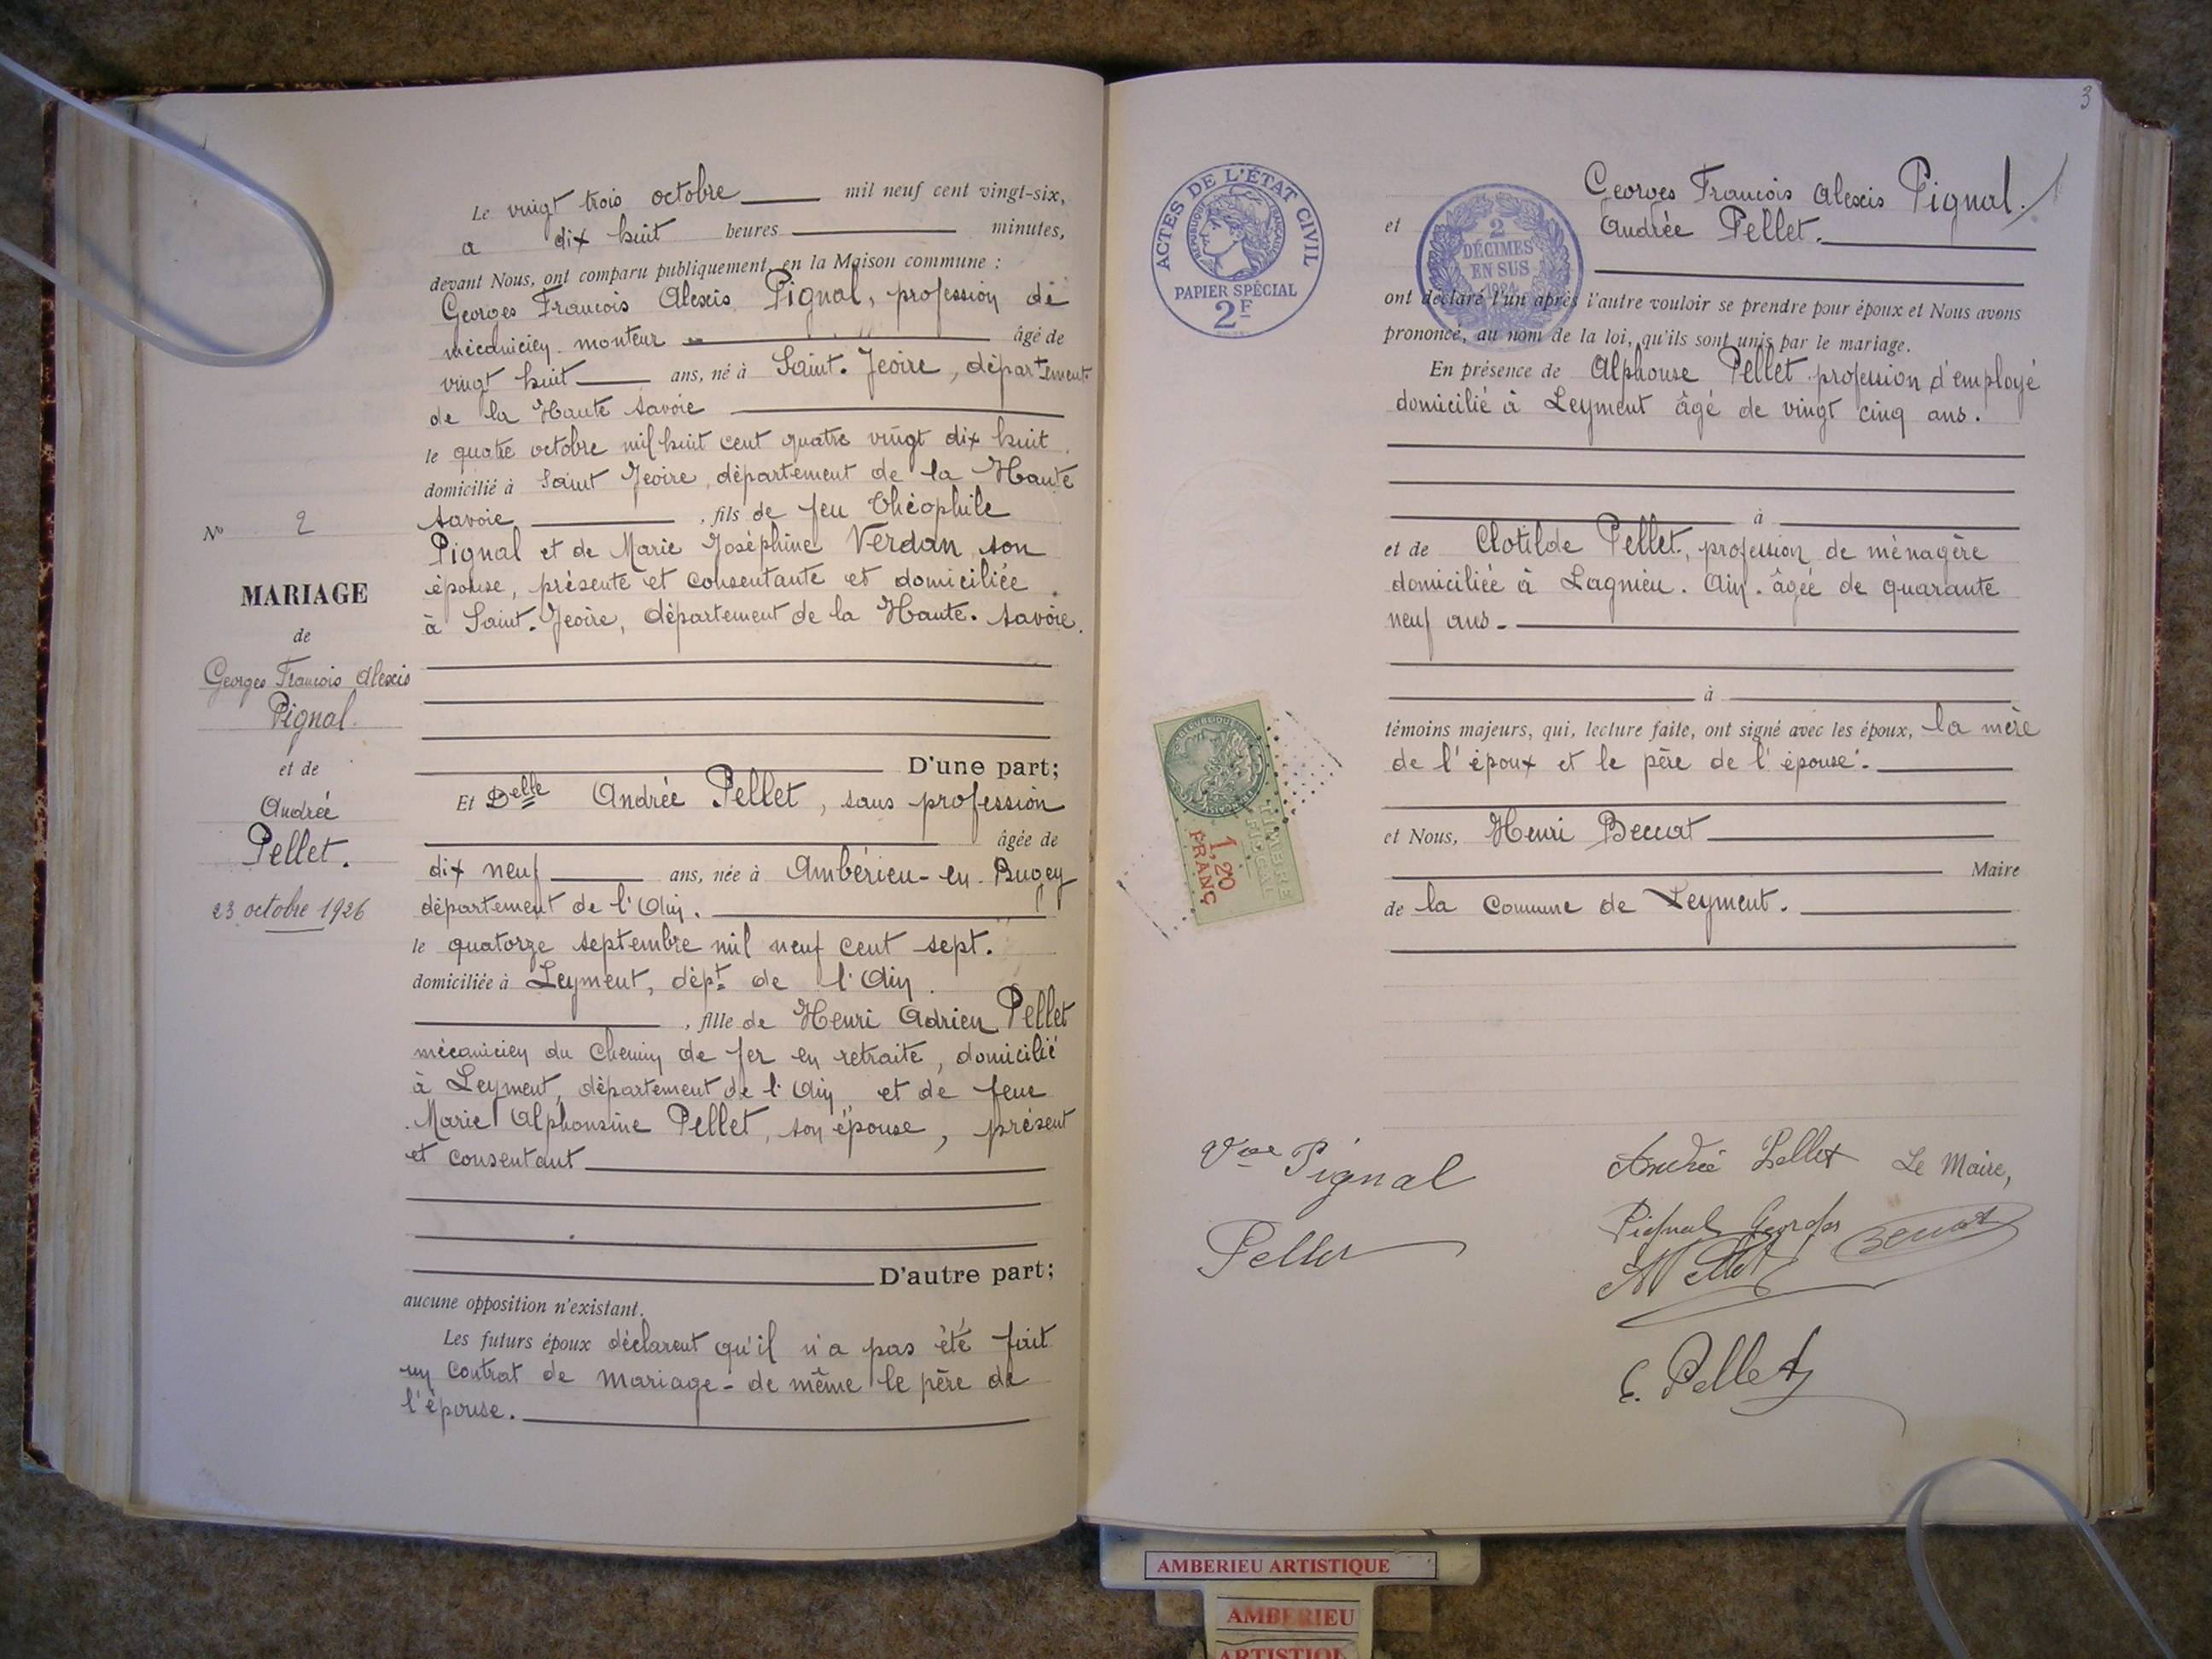 Le vingt trois octobre mil neuf cent vingt-six,
a dix huit heures minutes,
devant Nous, ont comparu publiquement, en la Maison commune :
Georges Francois Alexis Pignal, profession de
mécanicien monteur âgé de
vingt huit ans, né à Saint-Jeoire, département
de la Haute Savoie
le quatre octobre mil huit cent quatre vingt dix huit
domicilié à Saint Jeoire, département de la Haute
Savoie , fils de feu Théophile
Pignal et de Marie Joséphine Verdan, son
épouse, présente et consentante et domiciliée
à Saint-Jeoire, département de la Haute-Savoie.
D'une part;
Et Delle Andrée Pellet, sans profession
âgée de
dix neuf ans, née à Ambérieu-en-Bugey
département de l'Ain.
le quatorze septembre mil neuf cent sept.
domiciliée à Leyment, dépt de l'Ain
, fille de Henri Adrien Pellet
mécanicien du Chemin de fer en retraite, domicilié
à Leyment, département de l'Ain et de feue
Marie Alphonsine Pellet, son épouse, présent
et consentant
D'autre part;
aucune opposition n'existant.
Les futurs époux déclarent qu'il n'a pas été fait
un contrat de mariage - de même le père de
l'épouse.
No 2
MARIAGE
de
Georges Francois Alexis
Pignal.
et de
Andrée
Pellet.
23 octobre 1926
3
ACTES DE L'ÉTAT CIVIL
RÉPUBLIQUE FRANÇAISE
PAPIER SPÉCIAL
2F
2
DÉCIMES
EN SUS
1924
Georges Francois Alexis Pignal.
et Andrée Pellet.
ont déclaré l'un après l'autre vouloir se prendre pour époux et Nous avons
prononcé, au nom de la loi, qu'ils sont unis par le mariage.
En présence de Alphonse Pellet profession d'employé
domicilié à Leyment âgé de vingt cinq ans.
à
et de Clotilde Pellet, profession de ménagère
domiciliée à Lagnieu. Ain. âgée de quarante
neuf ans.
à
témoins majeurs, qui, lecture faite, ont signé avec les époux, la mère
de l'époux et le père de l'épouse.
et Nous, Henri Beccat
Maire
de la Commune de Leyment.
TIMBRE
FISCAL
1,20
FRANC
Vve Pignal
Pellet
Andrée Pellet Le Maire,
Pignal Georges
Beccat
A Pellet
C. Pellet
AMBERIEU ARTISTIQUE
AMBERIEU
ARTISTIQUE